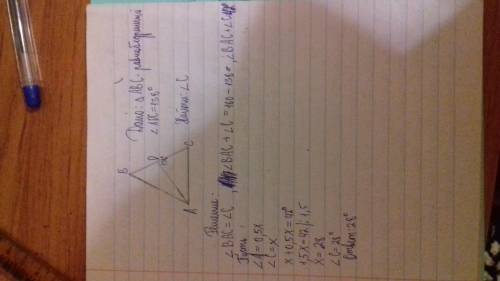 Дано: △ABC-равнобедренный
∠ADC=138°
Найти: ∠C
B
D
138°
A
C
Решение:
∠BAC=∠C, ∠BAC+∠C=180-138°, ∠BAC+∠C=42°
Пусть
∠A=0,5x
∠C=x
x+0,5x=42°
1,5x=42 | 1,5
x=28
∠C=28°
Ответ: 28°